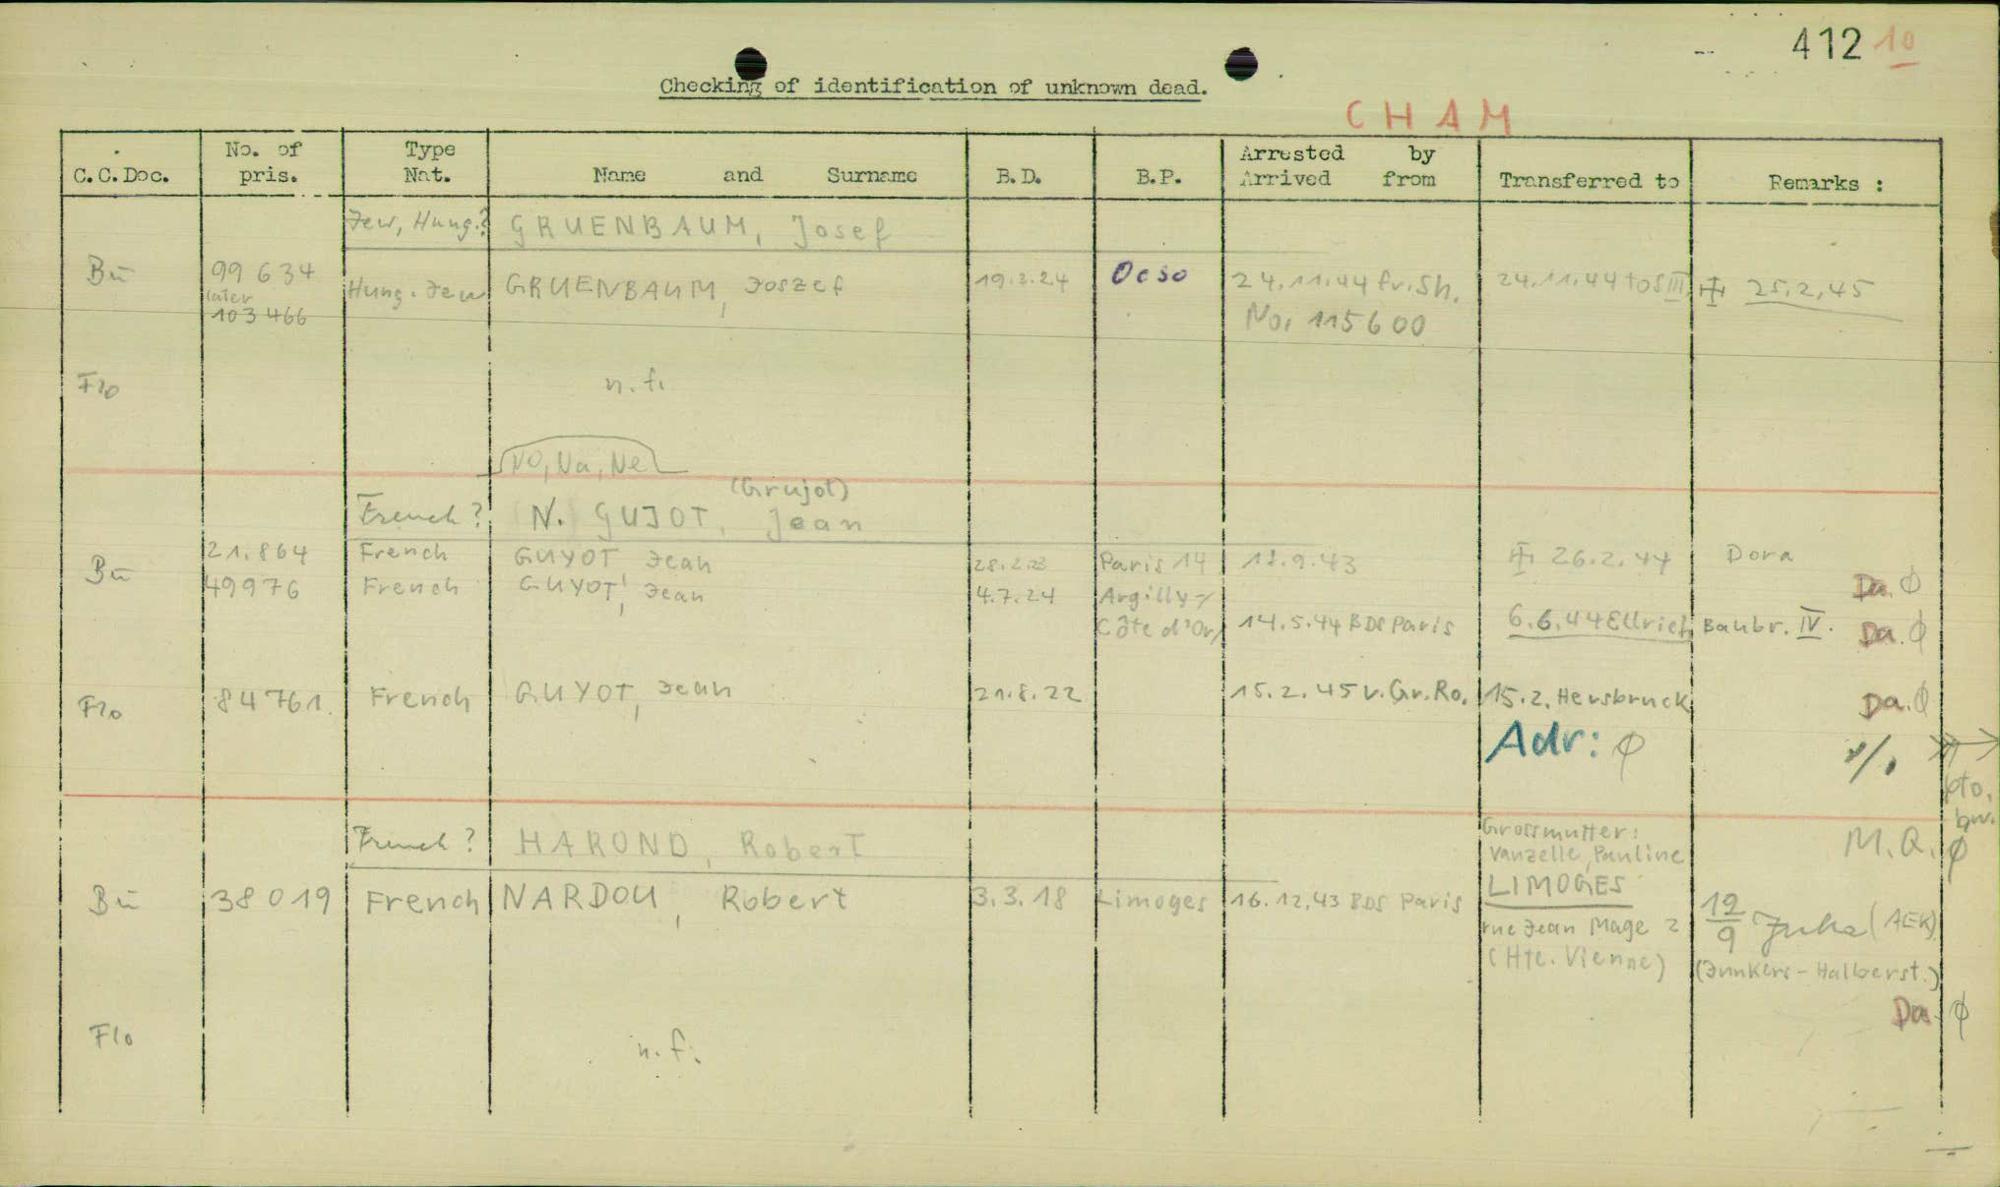 412 10
Checking of identification of unknown dead.
CHAM
C.C.Doc. No. of pris. Type Nat. Name and Surname B.D. B.P. Arrested by Arrived from Transferred to Remarks :
Jew, Hung.? GRUENBAUM, Josef
Bu 99 634 Hung. Jew GRUENBAUM, Joszef 19.2.24 Ocso 24.11.44 fr. Sh. 24.11.44 to S III 25.2.45
later
103 466 No. 115600
Flo n.f.
No, Na, Ne
(Grujot)
French? N. GUJOT, Jean
Bu 21.864 French GUYOT, Jean 28.2.23 Paris 14 17.9.43 26.2.44 Dora
Da. Ø
49976 French GUYOT, Jean 4.7.24 Argilly-
Côte d'Or 14.5.44 BDS Paris 6.6.44 Ellrich Baubr. IV. Da. Ø
Flo 84761. French GUYOT, Jean 21.8.22 15.2.45 v. Gr. Ro. 15.2. Hersbruck Da. Ø
Adr: Ø
pto.
bw.
French? HAROND, Robert Grossmutter: M.Q. Ø
Vanzelle, Pauline
LIMOGES
Bu 38019 French NARDOU, Robert 3.3.18 Limoges 16.12.43 BDS Paris 12/9 Juha (AEK)
rue Jean Mage 2
(Hte. Vienne) (Junkers - Halberst.)
Da. Ø
Flo n.f.